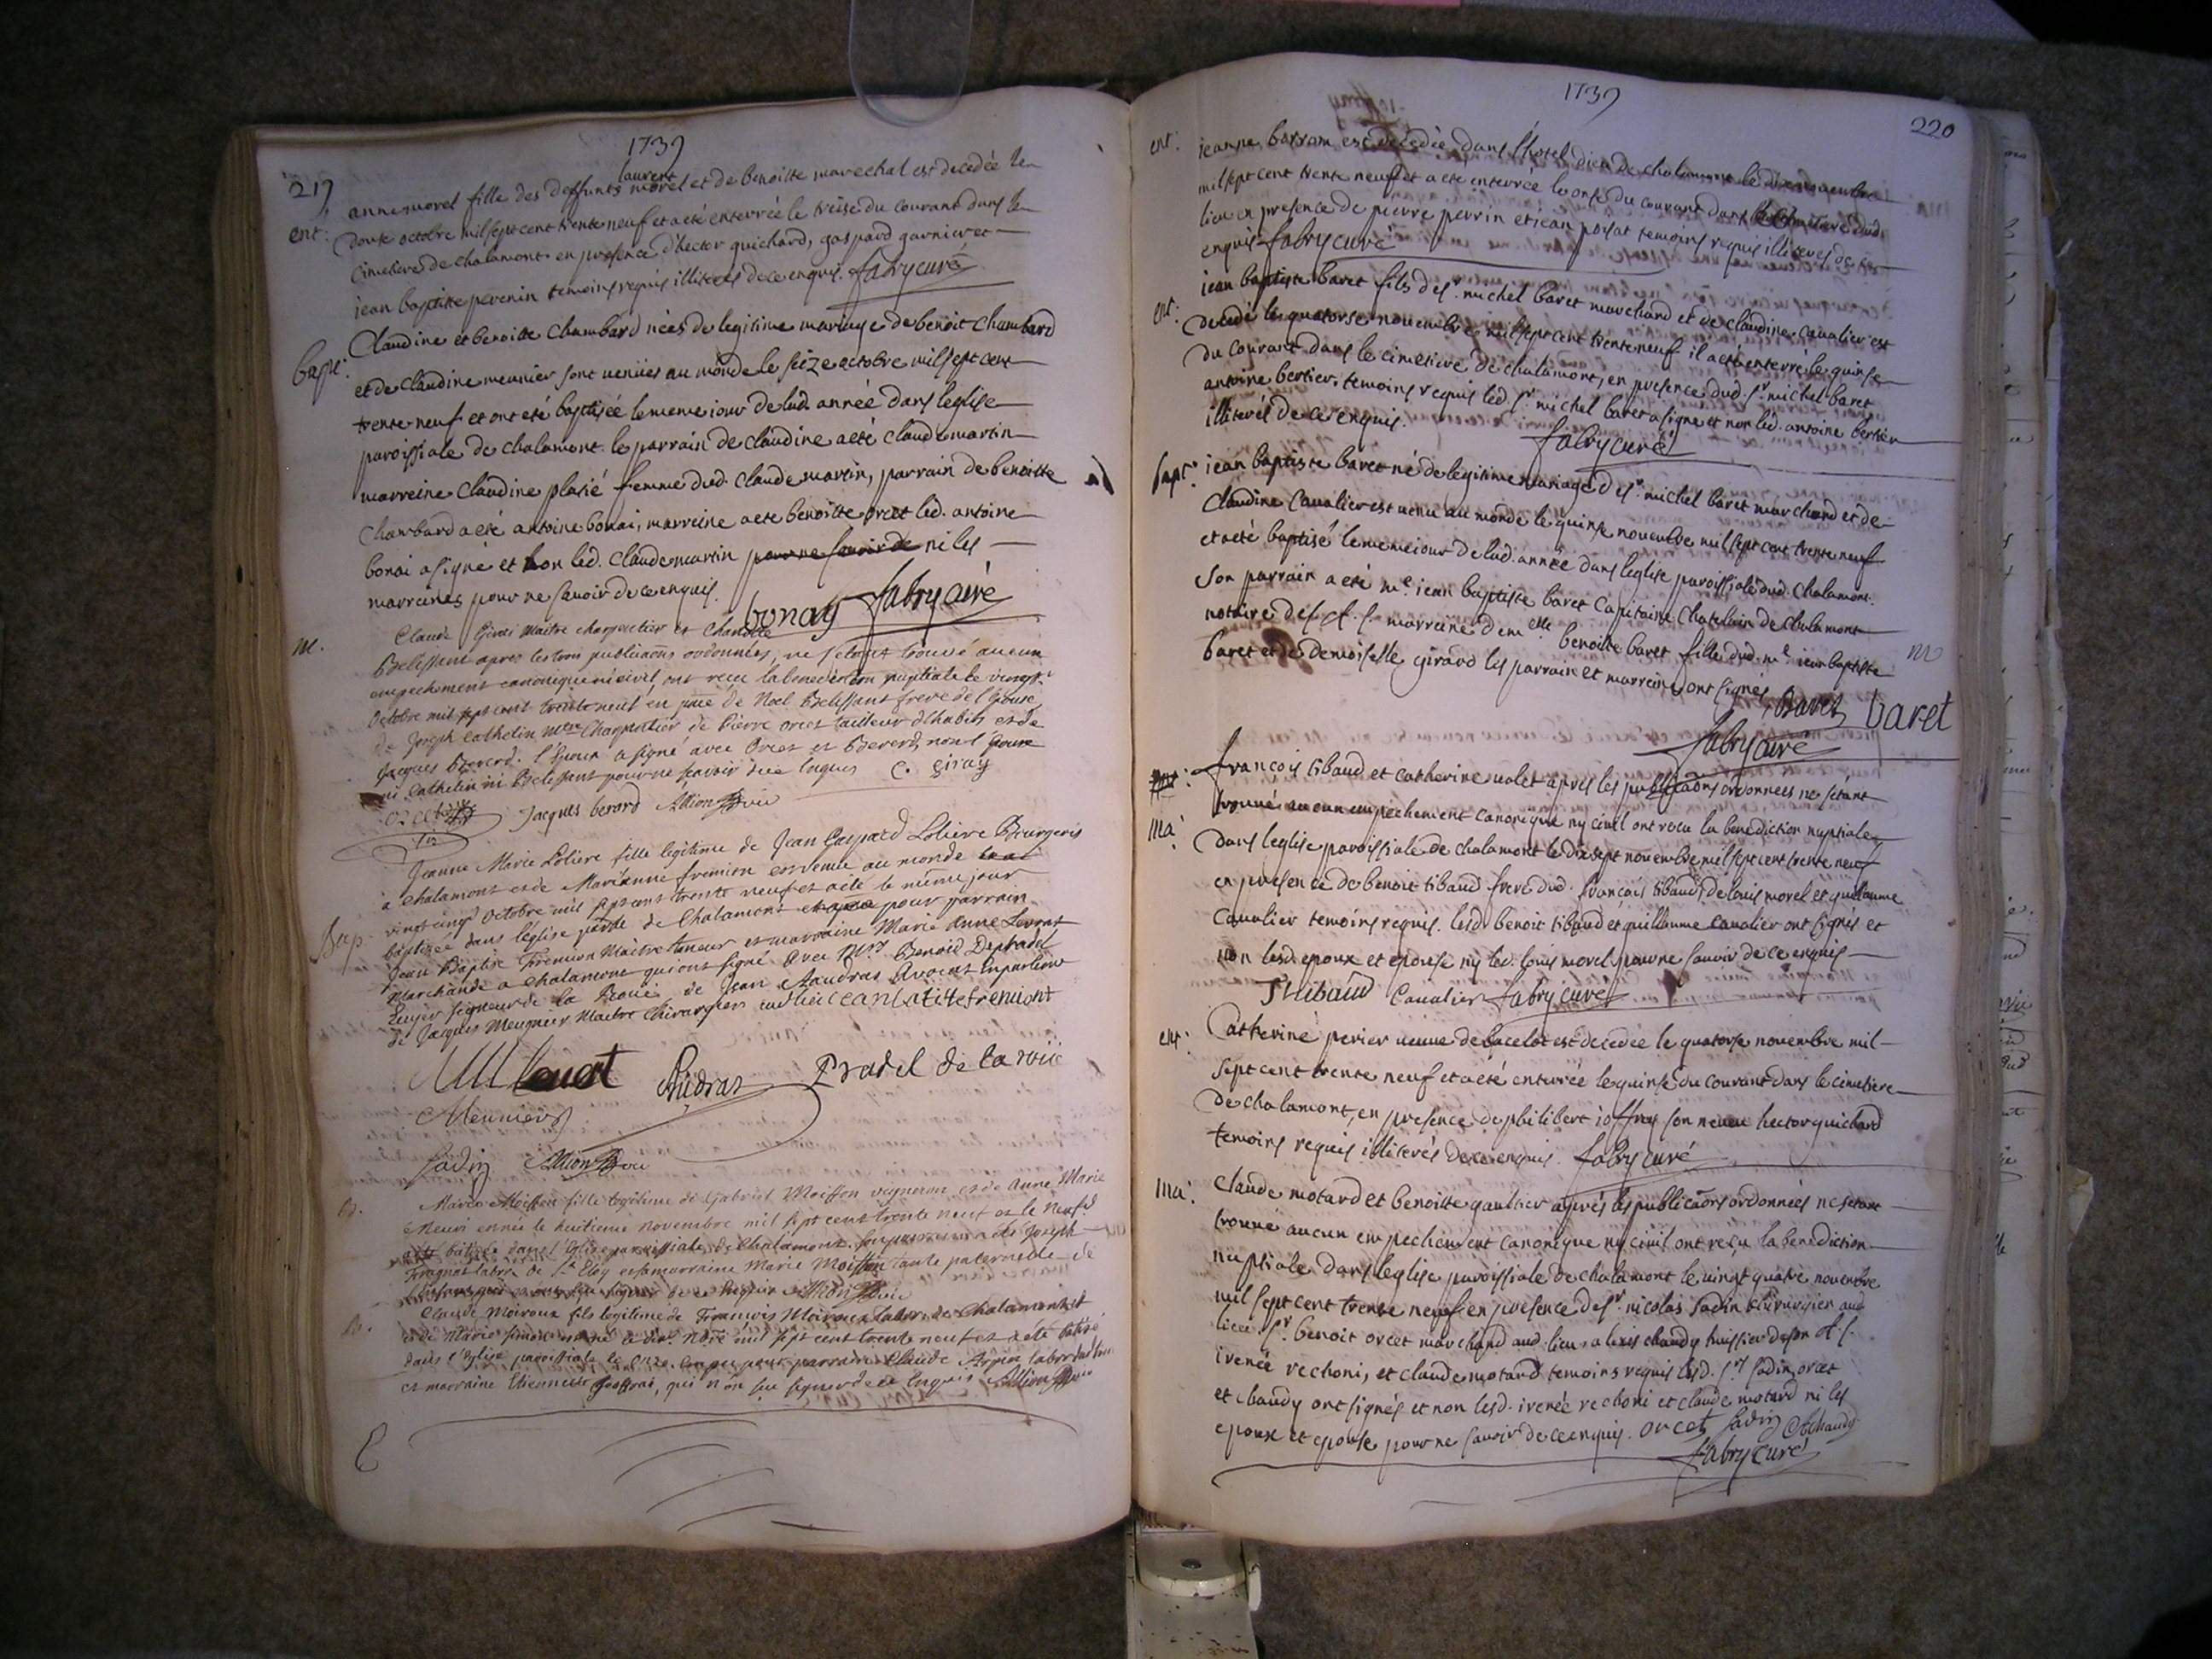 1739
219
laurent
ent: anne morel fille des deffunts morel et de benoitte marechal est decedée le
douse octobre mil sept cent trente neuf et a eté enterrée le treise du courant dans le
cimetiere de chalamont en presence d'hector guichard, gaspard garnier et
jean baptiste perenin temoins requis illiteres de ce enquis. fabry curé
bapt: Claudine et benoitte Chambard nées de legitime mariage de benoit Chambard
et de Claudine meunier sont venües au monde le seize octobre mil sept cent
trente neuf et ont eté baptisée le meme iour de lad. année dans leglise
paroissiale de chalamont. le parrain de claudine a eté claude martin
marreine Claudine plasié femme dud. Claude martin, parrain de benoitte
Chambard a eté antoine bonai, marreine a ete benoitte orcet led. antoine
bonai a signé et non led. Claude martin pour ne savoir de ni les
marreines pour ne savoir de ce enquis.
bonay fabry curé
m. Claude Girai maitre charpentier et Claudette
Belissant apres les trois publicaons ordonnées, ne s'etant trouvé aucun
empechement canonique ni civil ont recu la benediction nuptiale le vingt
octobre mil sept cent trente neuf en pnce de Noel Belissant frere de l'epouse
de Joseph Cathelin mtre Charpentier de Pierre orcet tailleur d'habits et de
Jacques Bererd. l'epoux a signé avec Orcet et Bererd, non l'epouse
ni Cathelin ni Belissant pour ne scavoir de ce enquis C. giray
orcet Jacques berard Allion
Bap. Jeanne Marie Loliere fille legitime de Jean Gaspard Loliere Bourgeois
à chalamont et de Marianne fremion est venue au monde le
vingt cinq octobre mil sept cent trente neuf et a eté le même jour
baptisée dans l'eglise pardle de Chalamont et a eu pour parrain
Jean Baptiste Fremion Maitre tanneur et marraine Marie Anne Levrat
Marchande a chalamont qui ont signé avec Mrs Benoid Depradel
Ecuyer seigneur de la Roüe de Jean Audras Avocat en parlem
de Jacques Meugnier Maitre Chirurgien jean batitefremiont
Levrat Audras Pradel de la roüe
Meunier
Sadin Allion
B. Marie Moisson fille legitime de Gabriel Moisson vigneron et de Anne Marie
Meuni est née le huitieme novembre mil sept cent trente neuf et le neuf
a eté batisée dans l'eglise paroissiale de Chalamont. son parrain a eté Joseph
Frragnat labr de St Eloy et sa marraine Marie Moisson tante paternelle de
l'enfant qui n'ont sçu signer de ce enquis Allion
B. Claude Moiroux fils legitime de François Moiroux labr de Chalamont
et de Marie est né le dix 9bre mil sept cent trente neuf et a eté batisé
dans l'Eglise paroissiale le onze. a eu pour parrain Claude labr
et marraine Etiennette Geoffrai, qui n'ont sçu signer de ce enquis Allion
1739
220
ent: jeanne barram est decedée dans l'hotel dieu de chalamont le dix novembre
mil sept cent trente neuf et a eté enterrée le onse du courant dans le cimetiere dud.
lieu en presence de pierre perrin et jean poisat temoins requis illiterés de ce
enquis fabry curé
ent: jean baptiste baret fils de sr. michel baret marchand et de claudine Cavalier est
decedé le quatorse novembre mil sept cent trente neuf il a eté enterré le quinse
du courant dans le cimetiere de chalamont, en presence dud. sr. michel baret
antoine bertier temoins requis led. sr. michel baret a signe et non led. antoine bertier
illiterés de ce enquis.
fabry curé
bapt: jean baptiste baret né de legitime mariage de sr. michel baret marchand et de
Claudine Cavalier est venu au monde le quinse novembre mil sept cent trente neuf
et a eté baptisé le meme iour de lad. année dans leglise paroissiale dud. Chalamont.
Son parrain a eté me. jean baptiste baret Capitaine Chatelain de Chalamont
notaire de s. A. S. marreine demelle benoitte baret fille dud. me. jean baptiste
baret et de demoiselle girard les parrain et marreine ont signés Baret baret
fabry curé
ma: francois tibaud et catherine valet apres les publicaons ordonnees ne setant
trouvé aucun empechement canonique ny civil ont recu la benediction nuptiale
dans leglise paroissiale de chalamont le dix sept novembre mil sept cent trente neuf
en presence de benoit tibaud frere dud. francois tibaud, de louis morel et guillaume
Cavalier temoins requis. lesd. benoit tibaud et guillaume cavalier ont signés et
non lesd. epoux et epouse ny led. louis morel pour ne savoir de ce enquis
Thibaud Cavalier fabry curé
ent: Catherine perier veuve de lacelot est decedée le quatorse novembre mil
sept cent trente neuf et a eté enterrée le quinse du courant dans le cimetiere
de chalamont, en presence de philibert joffrey son neveu hector guichard
temoins requis illiterés de ce enquis. fabry curé
ma: Claude motard et benoitte gaultier aprés les publicaons ordonnées ne setant
trouvé aucun empechement canonique ny civil ont reçu la benediction
nuptiale dans leglise paroissiale de chalamont le vingt quatre novembre
mil sept cent trente neuf en presence de sr. nicolas sadin chirurgien aud.
lieu. sr. benoit orcet marchand aud. lieu, alexis chaudy huissier de son A. S.
irenée rechoni, et claude motard temoins requis lesd. srs sadin, orcet
et chaudy ont signés et non lesd. irenée rechoni et claude motard ni les
epoux et epouse pour ne savoir de ce enquis. orcet sadin AChaudy
fabry curé